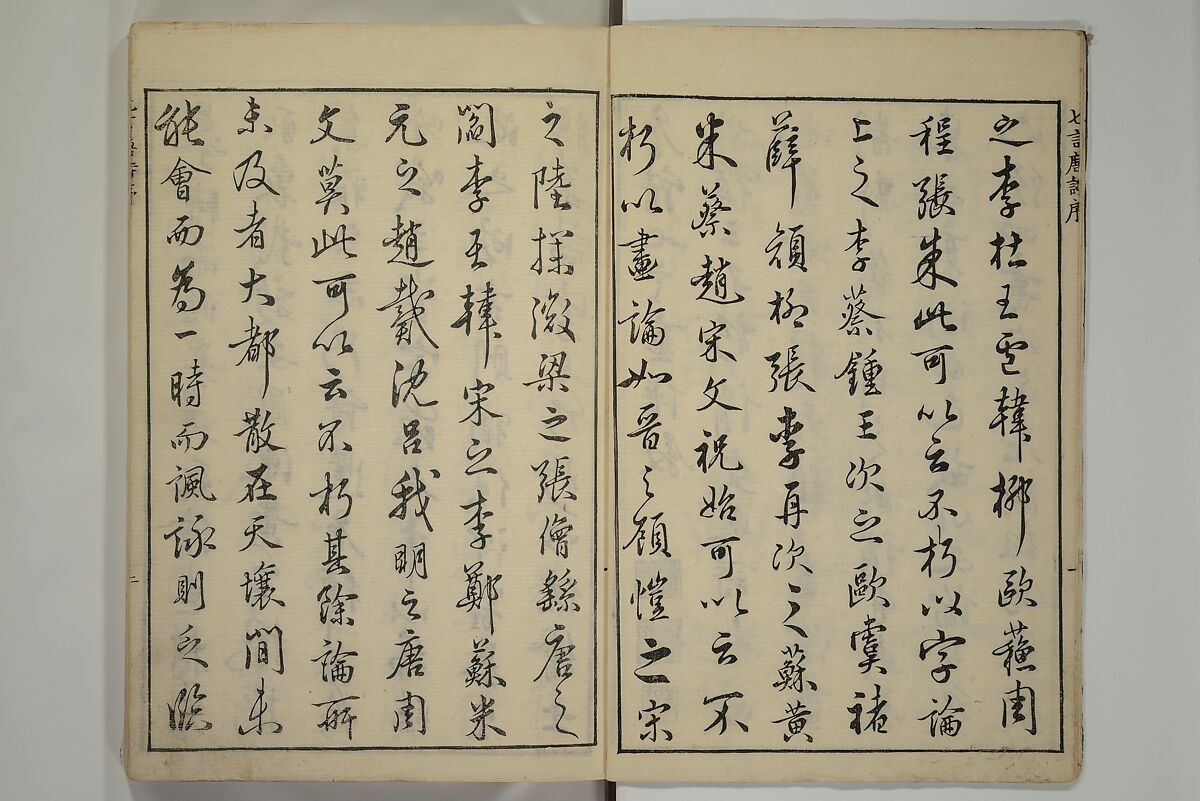 七言唐詩序
之李杜王孟韓柳歐蘇周
程張朱此可以云不朽以字論
上之李蔡鍾王次之歐虞褚
薛顏柳張李再次之蘇黃
米蔡趙宋文祝始可以云不
朽以畫論如晉之顧愷之宋
之陸探微梁之張僧繇唐之
閻李王韓宋之李鄭蘇米
元之趙戴沈呂我明之唐周
文莫此可以云不朽其餘論所
未及者大都散在天壤間未
能會而為一時而諷詠則乏臨